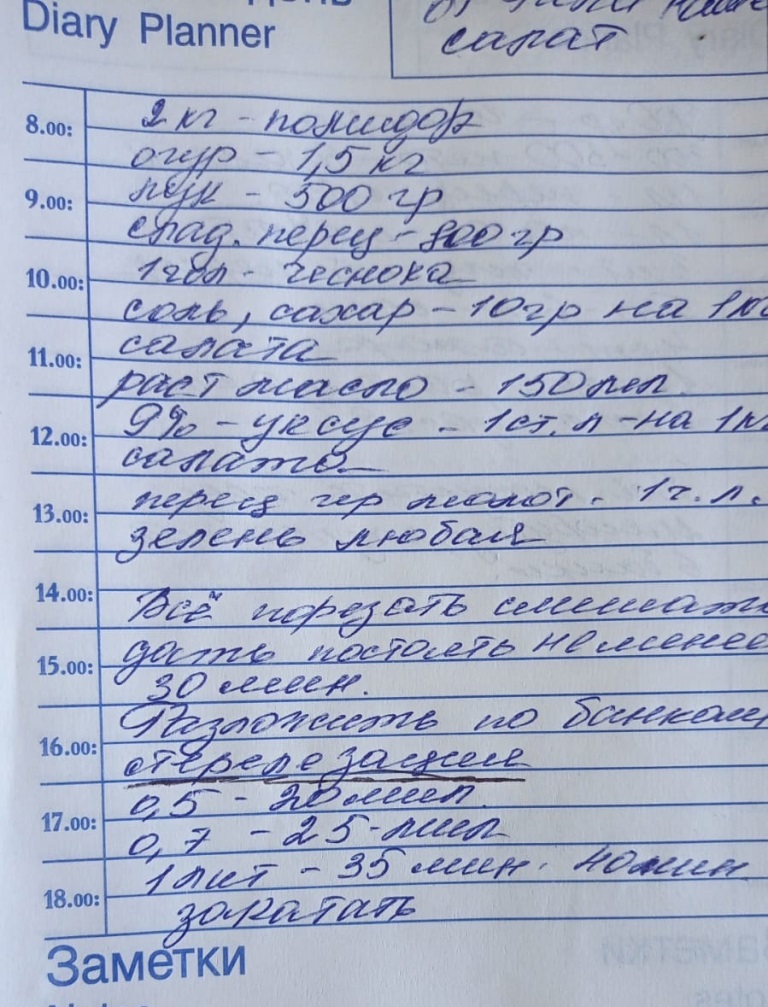 Diary Planner
салат
8.00:
2 кг - помидор
огур - 1,5 кг
9.00:
лук - 500 гр
слад. перец - 800 гр
10.00:
1 гол - чеснока
соль, сахар - 10 гр на 1 кг
11.00:
салата
раст масло - 150 мл
12.00:
9% - уксус - 1 ст. л - на 1 кг
салата
13.00:
перец чер молот. - 1 ч. л.
зелень любая
14.00:
Всё порезать смешать
15.00:
дать постоять не менее
30 мин.
Разложить по банкам
16.00:
стерелезация
0,5 - 20 мин
17.00:
0,7 - 25 - мин
1 лит - 35 мин. 40 мин
18.00:
закатать
Заметки